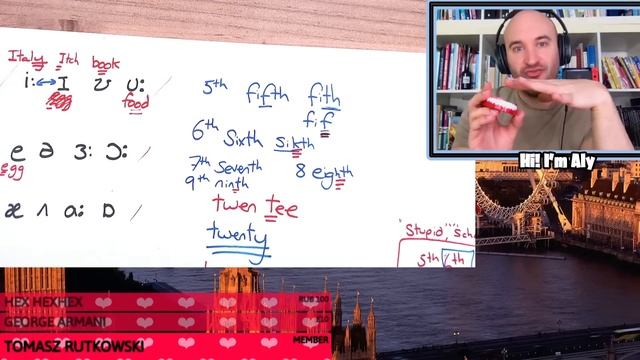 Italy Itch book
i: ↔ I ʊ u: /
Egg food
e ə ɜ: ɔ: /
Egg
æ ʌ ɑ: ɒ /
5th fifth fith
fif
6th Sixth Sikth
7th Seventh 8 eighth
9th ninth
twen tee
twenty
"Stupid,"
5th
Hi! I'm Aly
HEX HEXHEX RUB 100
GEORGE ARMANI
TOMASZ RUTKOWSKI MEMBER